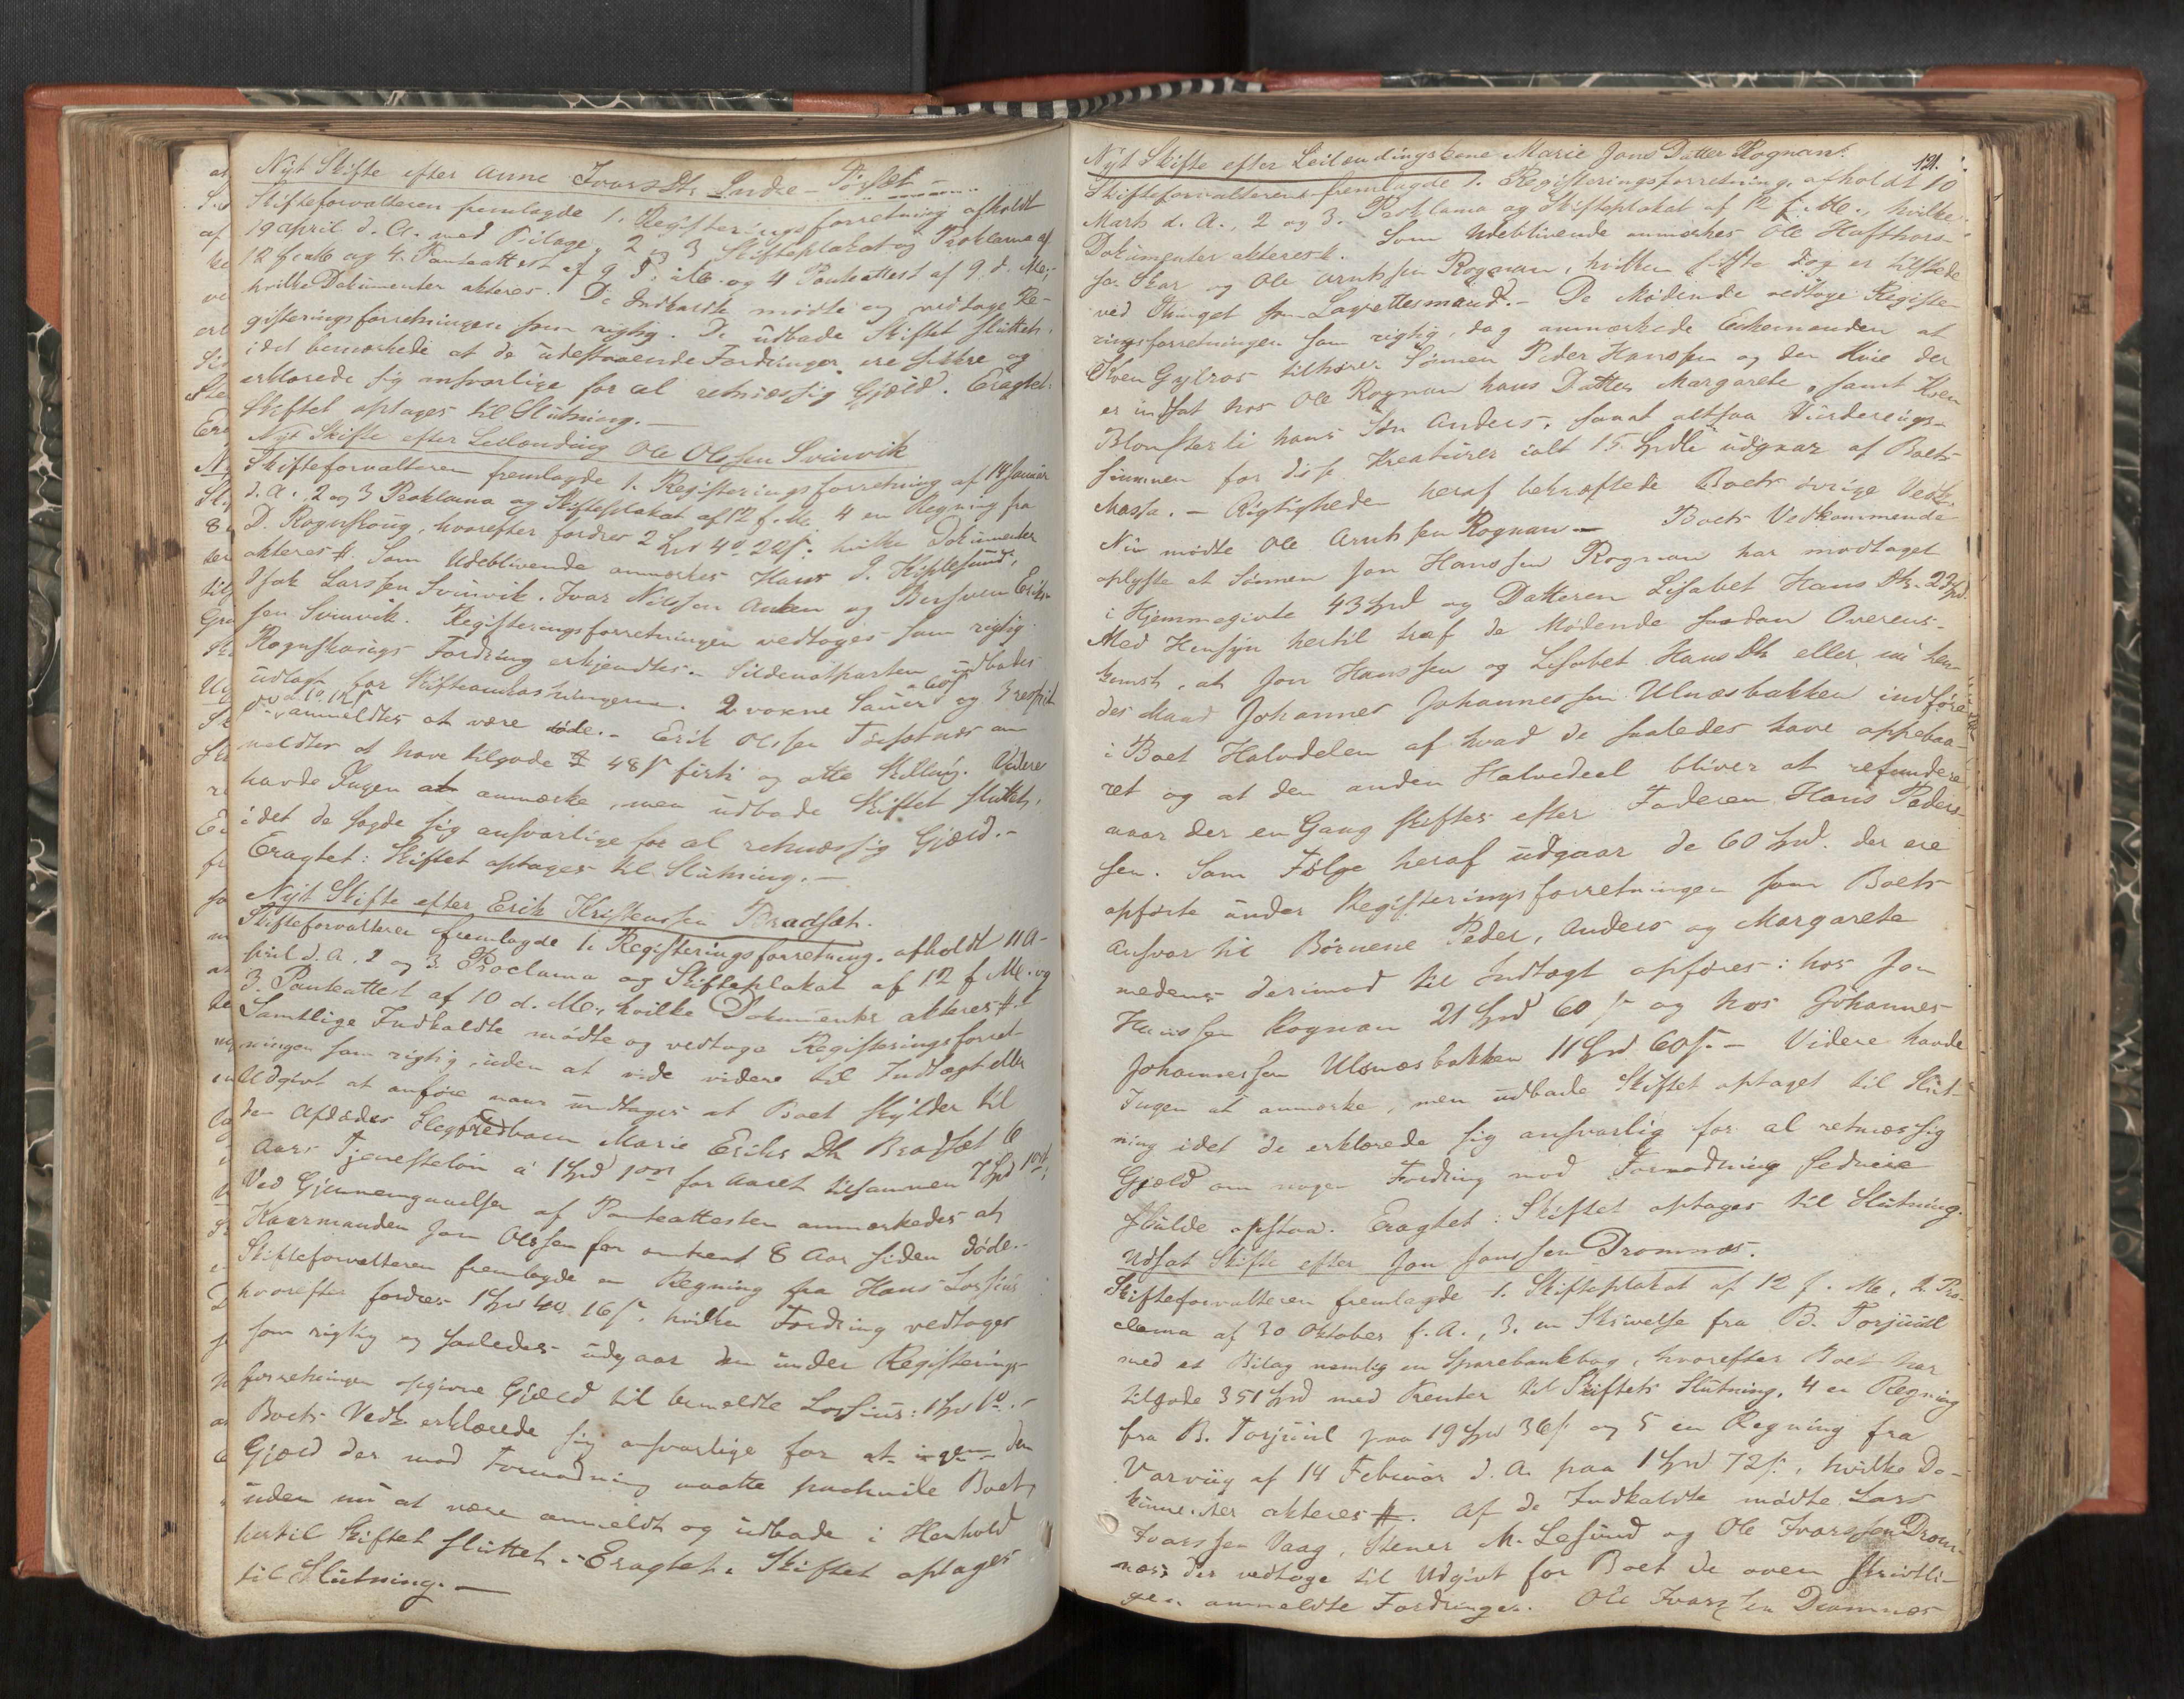 Nyt Skifte efter Anne Ivars Dtr Indre-Torset
Skifteforvalteren fremlagde 1. Registeringsforretning afholdt
19 april d. A. med Bilage, 2 og 3 Skifteplakat og Proklama af
12 f. Mb og 4. Panteattest af 9 d. Mb. og 4 Panteattest af 9. d. Mb.,
hvilke Dokumenter akteres. De Indkaldte mødte og vedtoge Re-
gisteringsforretningen som rigtig. De udbade Skiftet sluttet,
idet bemærkede at de udestaaende Fordringer ere sikre og
erklærede sig ansvarlige for al retmæssig Gjæld. Eragtet:
Skiftet optages til Slutning.—
Nyt Skifte efter Leilænding Ole Olssen Svinvik
Skifteforvalteren fremlagde 1. Registeringsforretning af 14 Januar
d. A., 2 og 3 Proklama og Skifteplakat af 12 f. Mb. 4 en Regning fra
D. Rognskoug, hvorefter fordres 2 Spd 4 22 s. hvilke Dokumenter
akteres #. Som Udeblivende anmærkes Hans I.
Isak Larssen Svinvik. Ivar Nilssen og Berhven Erik-
sen Svinvik. Registeringsforretningen vedtoges som rigtig.
Rognskougs Fordring erkjendtes. Sildenotparten udbades
udlagt for Skifteomkostningerne. 2 voxne Sauer og 3
anmeldtes at være døde.- Erik Olssen an-
meldtes at have tilgode 48 s firti og otte Skilling. Videre
havde Ingen at anmærke, men udbade Skiftet sluttet,
idet de sagde sig ansvarlige for al retmæssig Gjæld.-
Eragtet: Skiftet optages til Slutning.—
Nyt Skifte efter Erik Kristenssen Bradsæt.
Skifteforvalteren fremlagde 1. Registeringsforretning, afholdt 11 A-
pril d. A. 2 og 3. Proclama og Skifteplakat af 12 f Mb. og
3. Panteattest af 10 d. Mb., hvilke Dokumenter akteres #.-
Samtlige Indkaldte mødte og vedtoge Registeringsforret-
ningen som rigtig, uden at vide videre til Indtægt eller
Udgivt at anføre naar undtages at Boet skylder til
den Afdødes Slegfredbarn Marie Eriks Dtr Bradsæt 6
Aars Tjenesteløn á 1 Spd 1 ort for Aaret tilsammen 7 Spd 1 ort.
Ved Gjennemgaaelsen af Panteattesten anmærkedes at
Kaarmanden Jon Olssen for omtrent 8 Aar siden døde.-
Skifteforvalteren fremlagde en Regning fra Hans Lossius
hvorefter fordres 1 Spd 4 16 s. hvilken Fordring vedtoges
som rigtig og saaledes udgaar den under Registerings-
forretningen opgivne Gjæld til bemeldte Lossius: 1 Spd
Boets Vedk. erklærede sig ansvarlige for at ingen den
Gjæld der mod Formodning maatte paahvile Boet,
uden nu at være anmeldt og udbade i Henhold
hertil Skiftet sluttet.- Eragtet. Skiftet optages
til Slutning.—
121.
Nyt Skifte efter Leilændingskone Marie Jons Datter Rognan.
Skifteforvalteren fremlagde 1. Registeringsforretning, afholdt 10
Marts d. A., 2 og 3. Proklama og Skifteplakat af 12 f. Mb., hvilke
Dokumenter akteres #. Som Udeblivende anmærkes Ole Hafthors-
sen Skar og Ole Arntssen Rognan, hvilken sidste dog er tilstede
ved Thinget som Lagrettesmand.- De Mødende vedtoge Registe-
ringsforretningen som rigtig, dog anmærkede Enkemanden at
Koen Gylros tilhører Sønnen Peder Hanssen og den Kvie der
er indsat hos Ole Rognan hans Datter Margarete, samt Koen
Blomsterli hans Søn Anders, saaat altsaa Vurderings-
summen for disse Kreaturer ialt 15 Spdlr udgaar af Boets
Massa.- Rigtigheden heraf bekræftede Boets øvrige Vedk.
Nu mødte Ole Arntssen Rognan.- Boets Vedkommende
oplyste at Sønnen Jon Hanssen Rognan har modtaget
i Hjemmegivte 43 Spd og Datteren Lisabet Hans Dtr. 23 Spd.
Med Hensyn hertil traf de Mødende saadan Overens-
komst, at Jon Hanssen og Lisabet Hans Dtr eller nu hen-
des Mand Johannes Johannessen Ulnæsbakken indføre
i Boet Halvdelen af hvad de saaledes have oppebaa-
ret og at den anden Halvdeel bliver at refundere
naar der en Gang skiftes efter Faderen Hans Peders-
sen. Som Følge heraf udgaar de 60 Spd. der ere
opførte under Registeringsforretningen som Boets
Ansvar til Børnene Peder, Anders og Margarete
medens derimod til Indtægt opføres: hos Jon
Hanssen Rognan 21 Spd 60 s og hos Johannes
Johannessen Ulsnæsbakken 11 Spd 60 s.- Videre havde
Ingen at anmærke, men udbade Skiftet optaget til Slut-
ning idet de erklærede sig ansvarlig for al retmæssig
Gjæld om nogen Fordring mod Formodning sednere
skulde opstaa. Eragtet: Skiftet optages til Slutning.
Udsat Skifte efter Jon Janssen Dromnæs.
Skifteforvalteren fremlagde 1. Skifteplakat af 12 f. Mb., 2. Pro-
clama af 30 Oktober f. A., 3. en Skrivelse fra B. Torjuul
med et Bilag nemlig en Sparebankbog, hvorefter Boet har
tilgode 351 Spd med Renter til Skiftets Slutning, 4 en Regning
fra B. Torjuul paa 19 Spd 36 s og 5 en Regning fra
Varvig af 14 Februar d. A. paa 1 Spd 72 s., hvilke Do-
kumenter akteres #. Af de Indkaldte mødte Lars
Ivarssen Vaag, Stener M. Lesund og Ole Ivarssen Drom-
næs; der vedtoge til Udgivt for Boet de oven skriftli-
gen anmeldte Fordringer. Ole Ivarssen Dromnæs